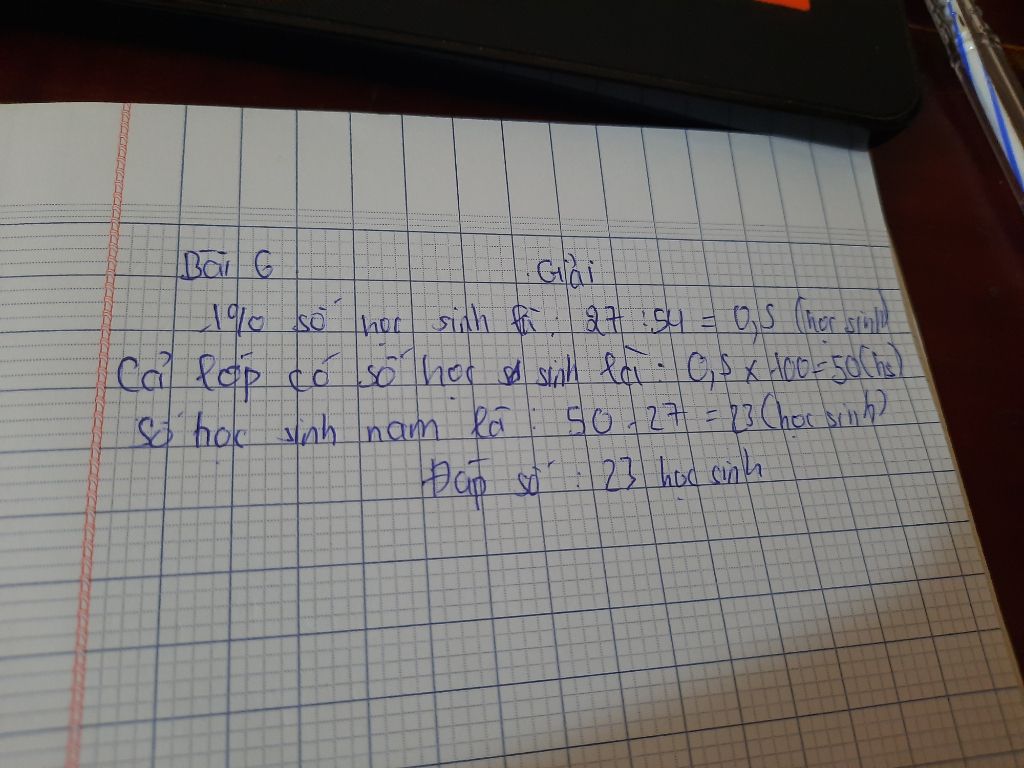 Bài 6 Giải
1% số học sinh là: 27 : 54 = 0,5 (học sinh)
Cả lớp có số học sinh là: 0,5 x 100 = 50 (hs)
Số học sinh nam là: 50 - 27 = 23 (học sinh)
Đáp số : 23 học sinh